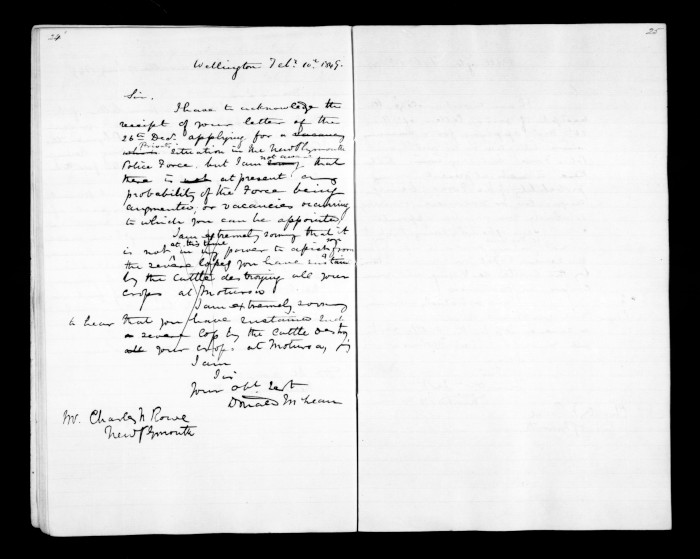 24
25
Wellington Feb. 10th 1849.
Sir.
I have to acknowledge the
receipt of your letter of the
26th Decr. applying for a vacancy
Private
situation in the New Plymouth
not aware
Police Force. but I am sorry that
there is not at present any
probability of the Force being
augmented, or vacancies occurring
to which you can be appointed
I am extremely sorry that it
at this time
is not in my power to assist you from
the severe losses you have sustain
by the cattle destroying all your
crops at Moturoa
I am extremely sorry
to hear that you have sustained such
a severe loss by the cattle destroy
all your crops at Moturoa,
I am
Sir
Your Obt. Servt
Donald McLean
Mr. Charles N Rowe
New Plymouth